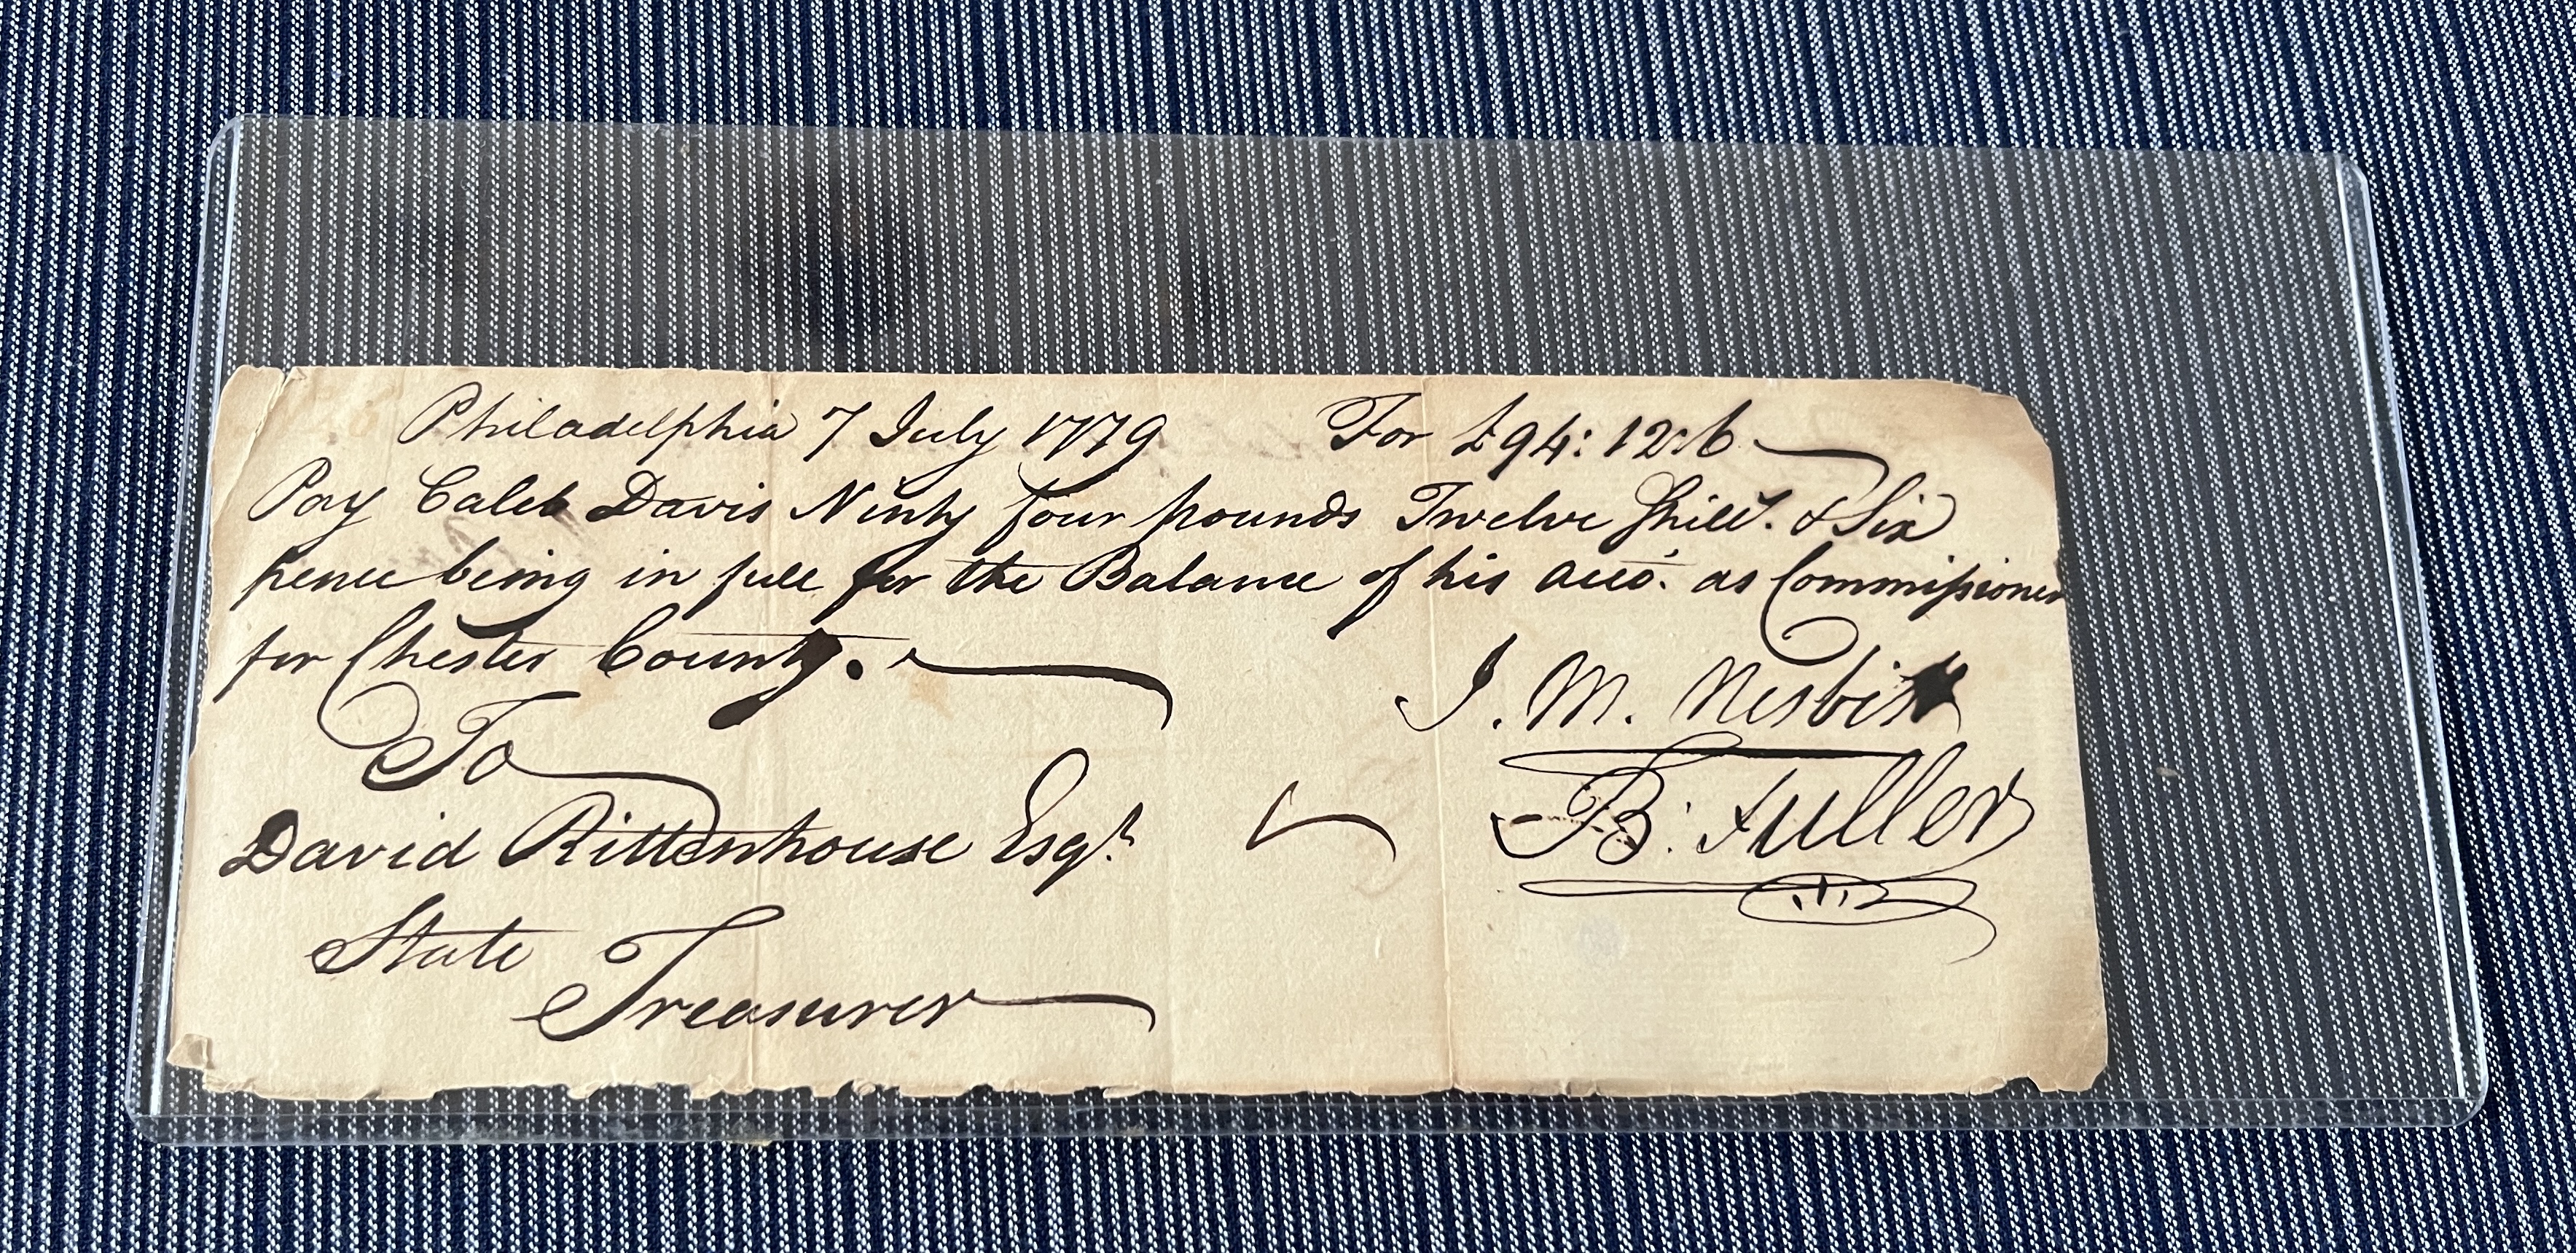 Philadelphia 7 July 1779 For £94: 12:6
Pay Caleb Davis Ninty four pounds Twelve Shill.s & Six
pence being in full for the Balance of his acco.t as Commissioner
for Chester County.
To
J. M. Nesbitt
David Rittenhouse Esq.r
B. Fuller
State
Treasurer